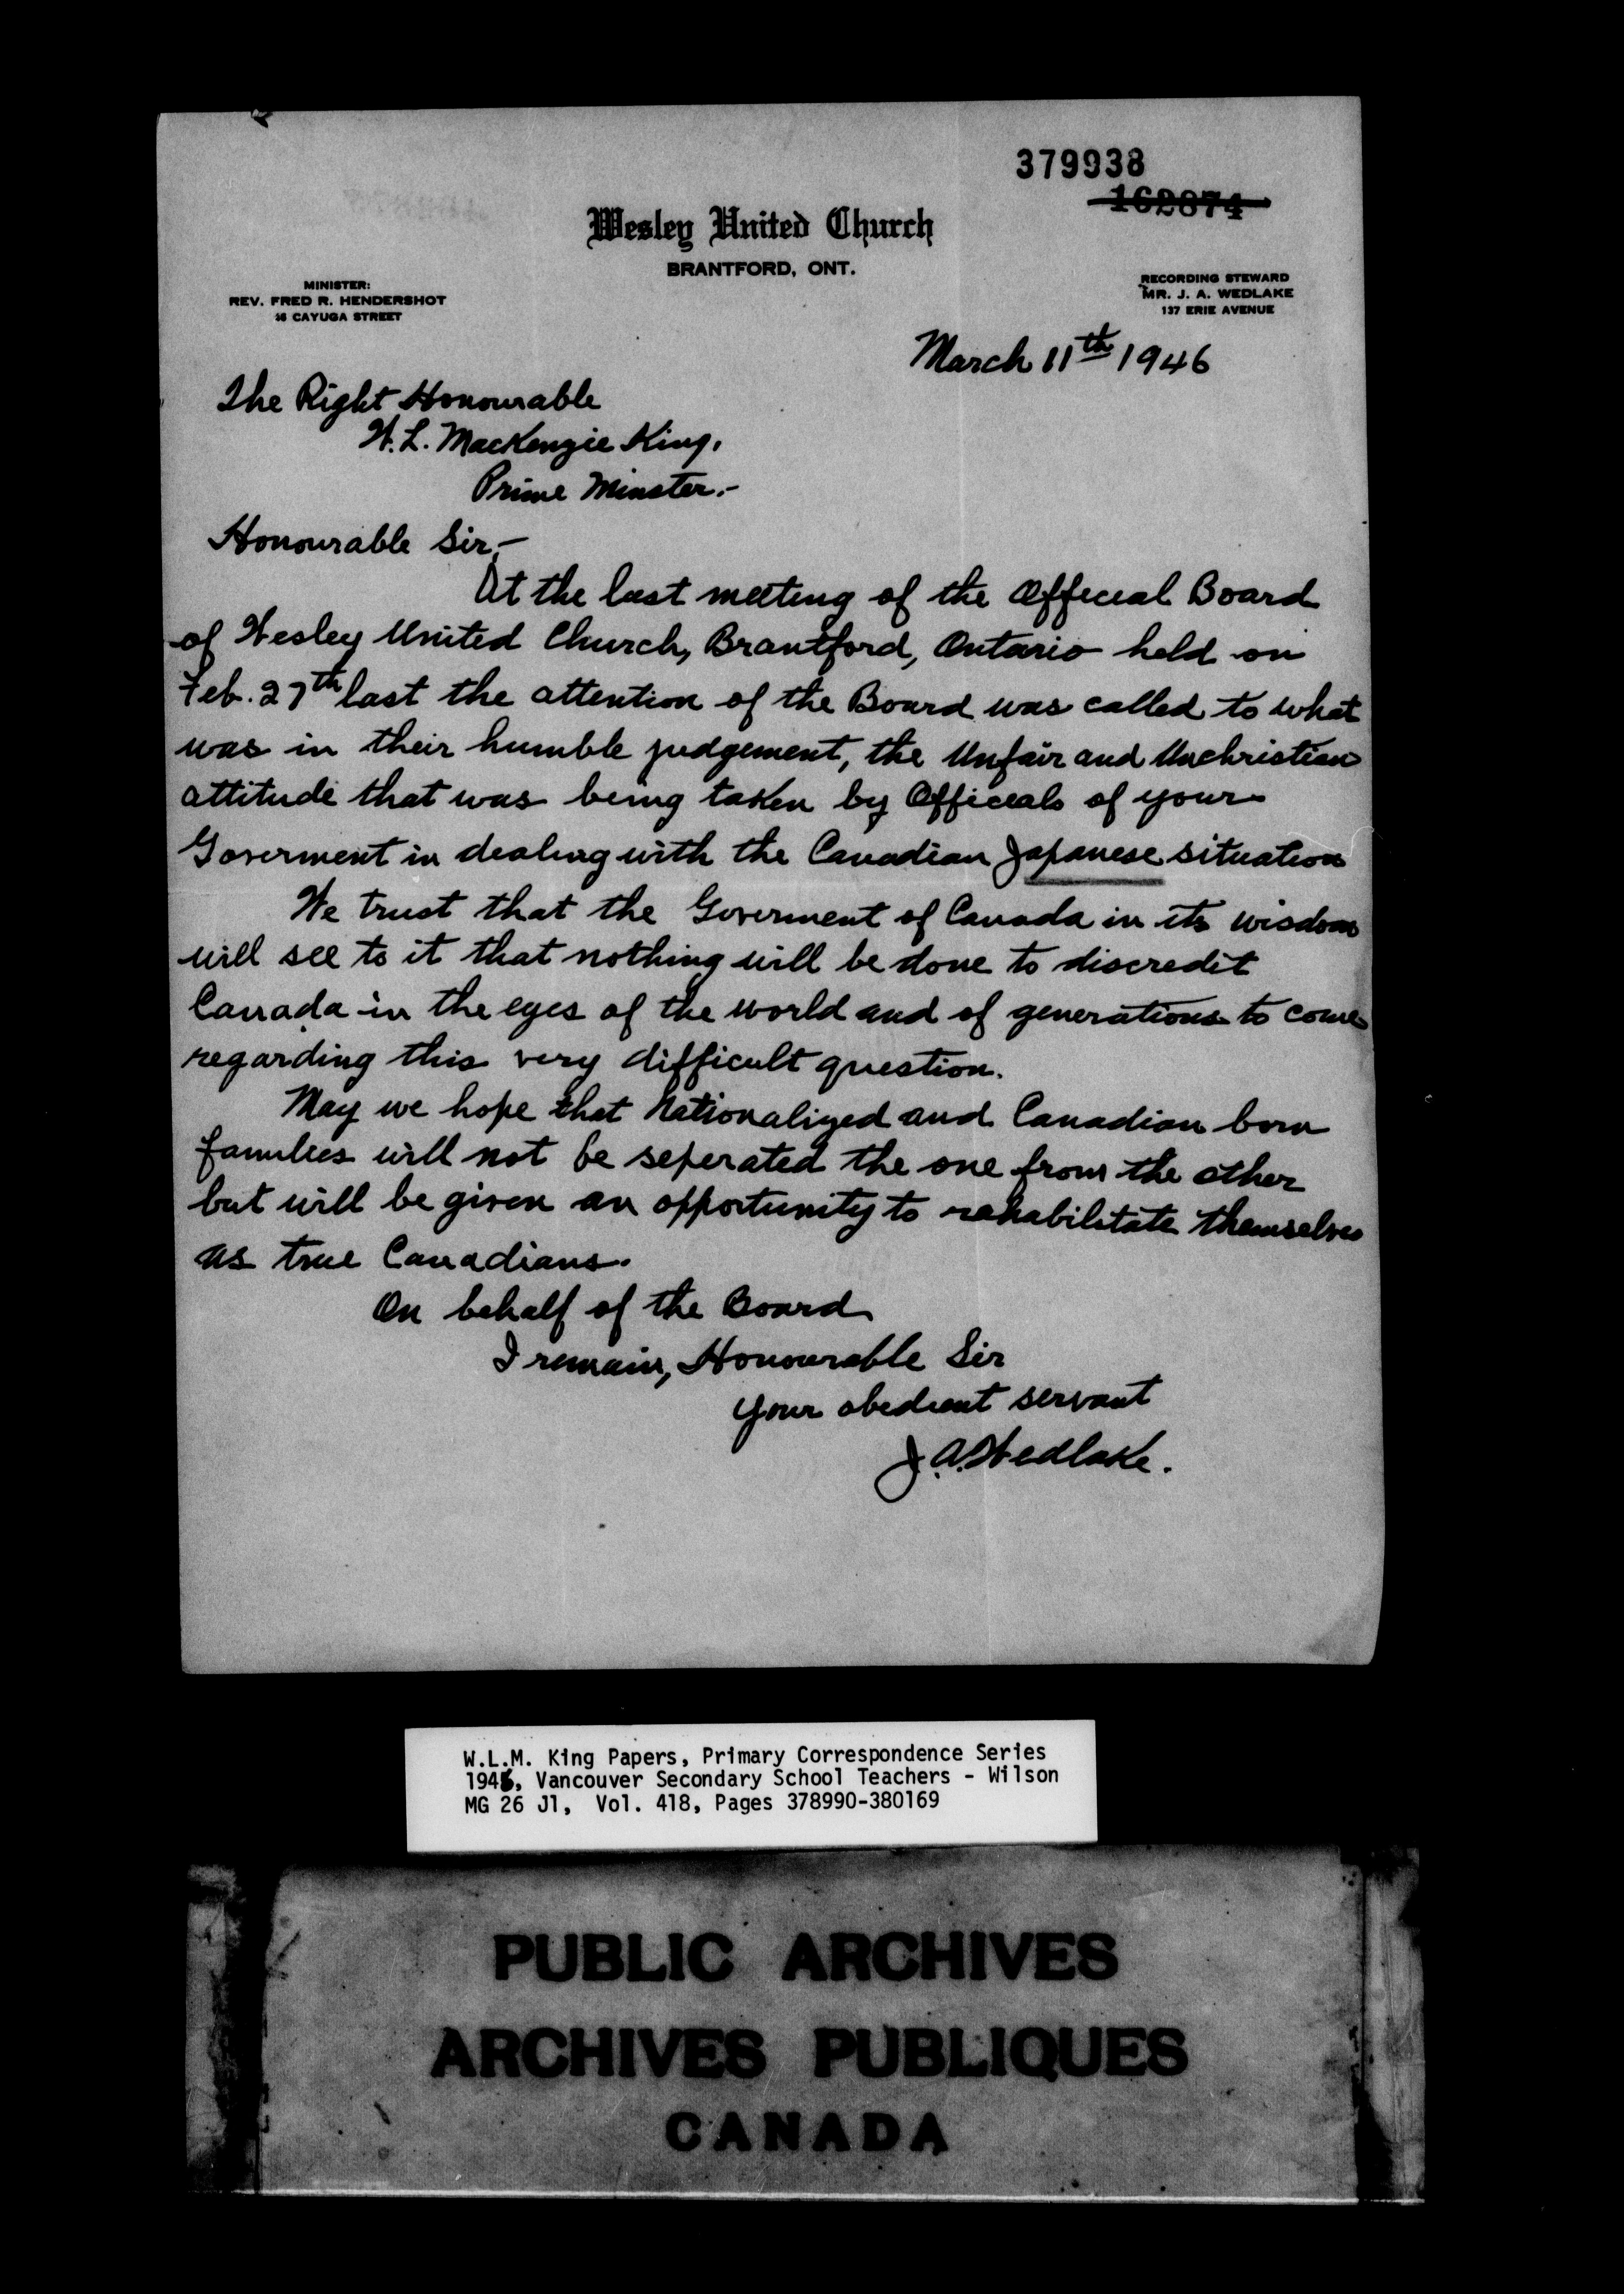 379938
162874
Wesley United Church
BRANTFORD, ONT.
MINISTER:
REV. FRED R. HENDERSHOT
CAYUGA STREET
RECORDING STEWARD
MR. J. A. WEDLAKE
137 ERIE AVENUE
March 11th 1946
The Right Honourable
W. L. MacKenzie King,
Prime Minster.-
Honourable Sir,-
At the last meeting of the Official Board
of Wesley United Church, Brantford, Ontario held on
Feb. 27th last the attention of the Board was called to what
was in their humble judgement, the Unfair and Unchristian
attitude that was being taken by Officials of your
Goverment in dealing with the Canadian Japanese situation
We trust that the Goverment of Canada in its wisdom
will see to it that nothing will be done to discredit
Canada in the eyes of the world and of generations to come
regarding this very difficult question.
May we hope that Nationalized and Canadian born
families will not be seperated the one from the other
but will be given an opportunity to rehabilitate themselves
as true Canadians.
On behalf of the Board
I remain, Honourable Sir
Your obedient servant
J. A. Wedlake.
W.L.M. King Papers, Primary Correspondence Series
1946, Vancouver Secondary School Teachers - Wilson
MG 26 J1, Vol. 418, Pages 378990-380169
PUBLIC ARCHIVES
ARCHIVES PUBLIQUES
CANADA